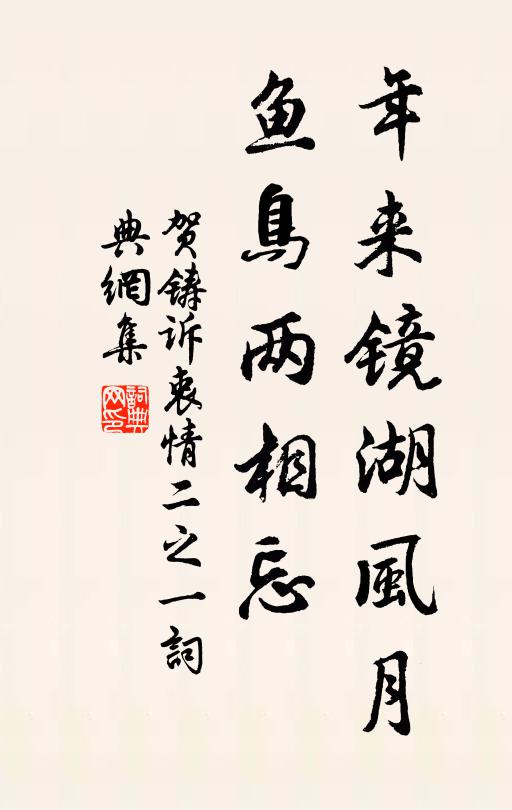 年来镜湖風月
鱼鳥两相忘
贺鑄诉衷情二之一詞
典網集
詞典网印